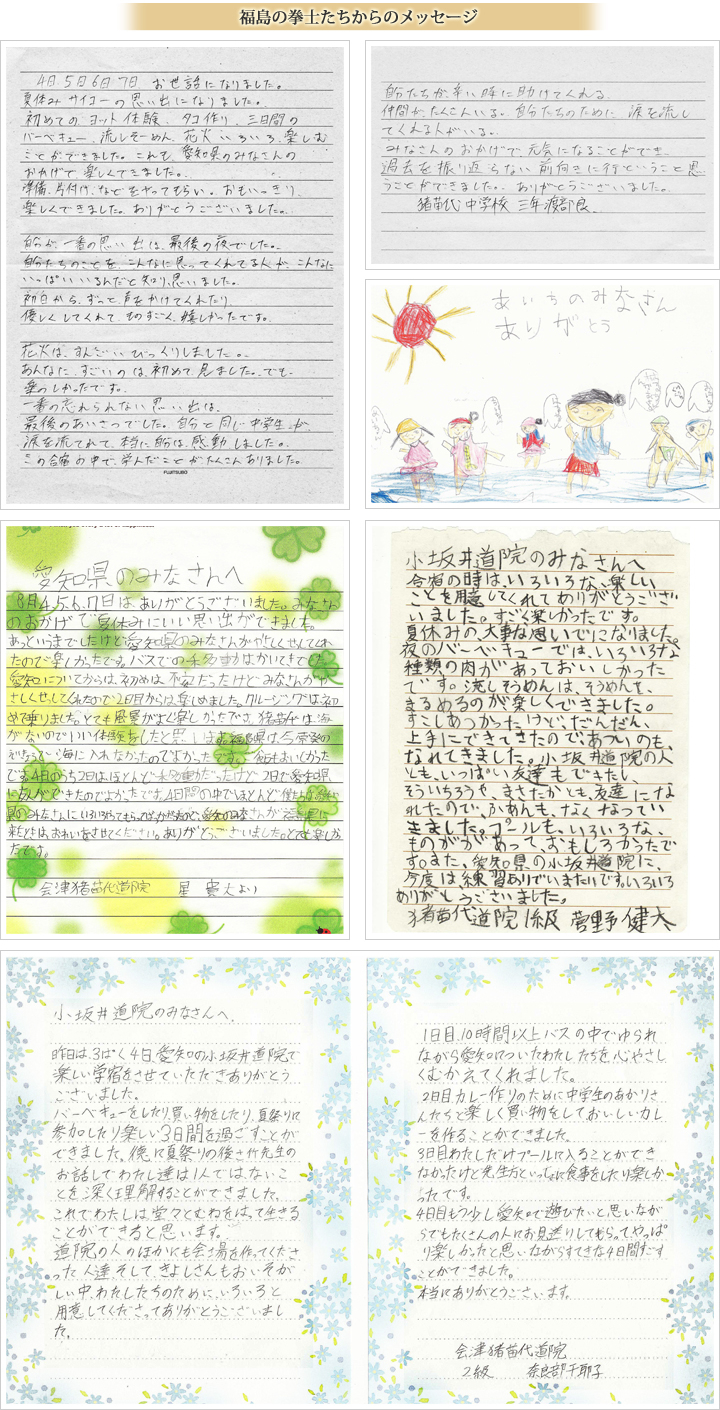 福島の拳士たちからのメッセージ
4日、5日6日7日 お世話になりました。
夏休み サイコーの思い出になりました。
初めての ヨット体験、タコ作り、三日間の
バーベキュー、流しそーめん、花火 いろいろ、楽しむ
ことができました。これも、愛知県のみなさんの
おかげで、楽しくできました。
準備、片付け、などをやってもらい。おもいっきり、
楽しくできました。ありがとうございました。
自分が、一番の思い出は、最後の夜でした。
自分たちのことを、こんなに思ってくれてる人が、こんなに
いっぱいいるんだと知り、思いました。
初日から、ずっと、声をかけてくれたり、
優しくしてくれて、ものすごく、嬉しかったです。
花火は、すんごいびっくりしました。
あんなに、すごいのは、初めて、見ました。でも、
楽のしかったです。
一番の忘れられない思い出は、
最後のあいさつでした。自分と同じ中学生が、
涙を流てれて、本当に自分は、感動しました。
この合宿の中で、学んだことがたくさんありました。
FUJITSUBO
自分たちが、辛い時に助けてくれる、
仲間が、たくさんいる。自分たちのために、涙を流し
てくれる人がいる。
みなさんのおかげで、元気になることができ、
過去を振り返らない 前向きに行こうということ思
うことができました。ありがとうございました。
猪苗代中学校 三年渡部良
あいちのみなさん
ありがとう
愛知県のみなさんへ
8月4,5,6,7日は、ありがとうございました。みなさん
のおかげで夏休みにいい思い出ができました。
あっというまでしたけど愛知県のみなさんがやさしくせっしてくれ
たので楽しかったです。バスでの
愛知についてからは、初めは、不安だったけどみなさんが
さしくせっしてくれたので2日目からは楽しめました。クルージングは初
めて乗りました。とても風景がよく楽しかったです。猪苗代は海
がないのでいい体験をしたと思います。福島県は
海に入れなかったのでよかったです。
です。4日のうち2日はほとんど 2日で愛知県
に友人ができたのでよかったです。4日間の中でほとんど
県のみなさんにいろいろやってもらった 愛知のみなさんが福島県に
来たときは、おれいをさせてください。ありがとうございました。とても楽しか
たです。
会津猪苗代道院 星
小坂井道院のみなさんへ
合宿の時は、いろいろな、楽しい
ことを用意してくれてありがとうござ
いました。すごく楽しかったです。
夏休みの、大事な思いでになりました。
夜のバーベキューでは、いろいろな
種類の肉があっておいしかった
です。流しそうめんは、そうめんを、
まるめるのが楽しくできました。
すこしあつかったけど、だんだん、
上手にできてきたので、あつい、のも、
なれてきました。小坂井道院の人
とも、いっぱい友達もできたし、
そういちろうや、まさたかとも、友達にな
れたので、ふあんも、なくなってい
きました。プールも、いろいろな、
ものがあって、おもしろかったで
す。また、愛知県の小坂井道院に、
今度は、練習ありでいきたいです。いろいろ
ありがとうございました。
猪苗代道院1級 菅野健太
小坂井道院のみなさんへ、
昨日は、3ぱく4日、愛知の小坂井道院で
楽しい学宿をさせていただきありがとう
ございました。
バーベキューをしたり買い物をしたり、夏祭りに
参加したり楽しい3日間を過ごすことが
できました。俺に夏祭りの後さか先生の
お話しでわたし達は1人では、ないこ
とを深く理解することができました。
これでわたしは堂々とむねをはって生きる
ことができると思います。
道院の人のほかにも会場を作ってくださ
った人達、そして、きよしさんもおいそが
しい中、わたしたちのために、いろいろと
用意してくださってありがとうございまし
た。
1日目、10時間以上バスの中でゆられ
ながら愛知についたわたしたちを、心やさし
くむかえてくれました。
2日目カレー作りのために中学生のあかりさ
んたちと楽しく買い物をしておいしいカレ
ーを作ることができました。
3日目わたしだけプールに入ることができ
なかったけど先生方といっしょに食事をしたり楽しか
ったです。
4日目もう少し愛知で遊びたいと思いなが
らでもたくさんの人にお見送りしてもらって、やっぱ
り楽しかったと思いながらすてきな4日間だす
ことができました。
本当にありがとうございます。
会津猪苗代道院
2級 奈良部千耶子